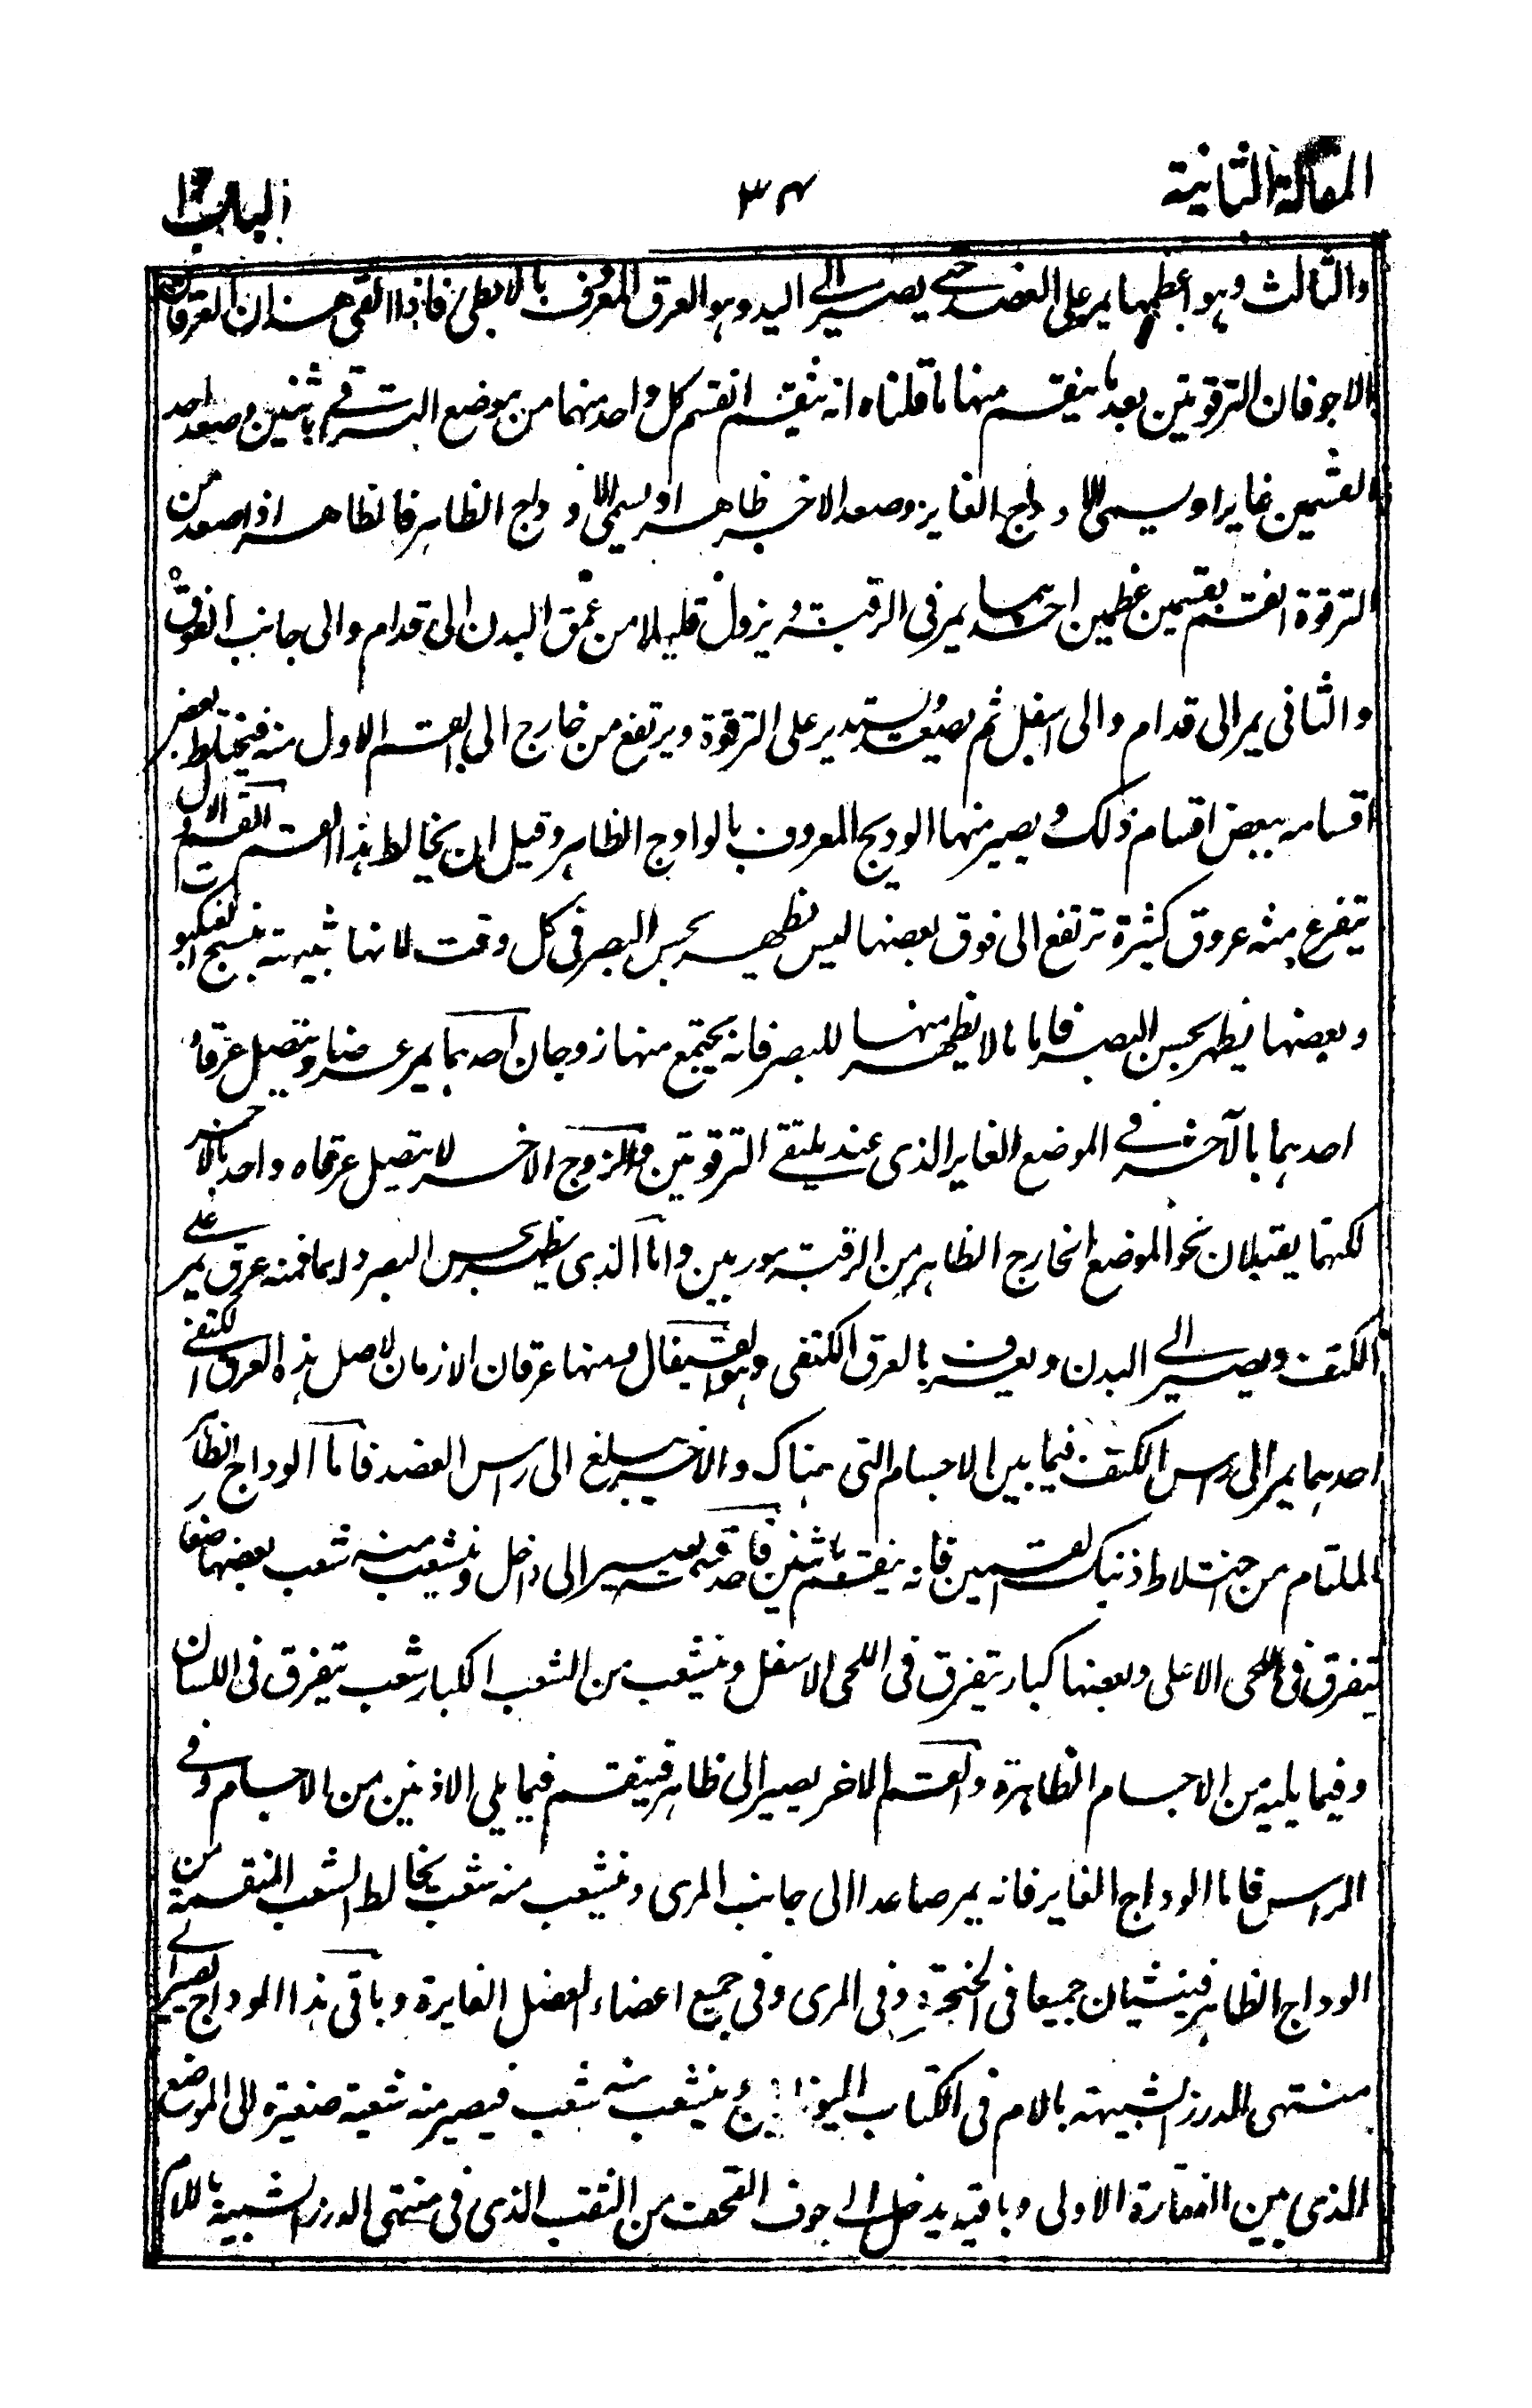 المقالة الثانية
٣٤
الباب ١
والثالث وهو اعظمها يمر على العضد حتى يصير الى اليد وهو العرق المعروف بالابطى فاذا التقى هذان العرقان
الاجوفان الترقوتين بعد ما ينقسم منها ما قلناه انه ينقسم انقسم كل واحد منهما من موضع الترقى باثنين وصعد احد
القسمين غايرا ويسمى الاوداج الغاير وصعد الاخر ظاهرا ويسمى الاوداج الظاهر فالظاهر اذا صعد من
الترقوة انقسم بقسمين عظيمين احدهما يمر فى الرقبة ويزول قليلا من عمق البدن الى قدام والى جانب الفوق
والثانى يمر الى قدام والى اسفل ثم يصعد ويستدير على الترقوة ويرتفع من خارج الى القسم الاول منه فيختلط بعض
اقسامه ببعض اقسام ذلك ويصير منها الوديج المعروف بالوادج الظاهر وقيل ان يخالط هذا القسم القسم الاول
يتفرع منه عروق كثيرة ترتفع الى فوق بعضها ليس يظهر بحس البصر فى كل وقت لانها شبيهة بنسج العنكبوت
وبعضها يظهر بحس البصر فاما ما لا يظهر منها للبصر فانه يجتمع منها زوجان احدهما يمر عرضا ويتصل عرقاه
احدهما بالآخر فى الموضع الغاير الذى عند ملتقى الترقوتين والزوج الاخر لا يتصل عرقاه واحد بالاخر
لكنهما يقبلان نحو الموضع الخارج الظاهر من الرقبة موربين واما الذى يظهر بحس البصر دايما فمنه عرق يمر على
الكتف ويصير الى البدن ويعرف بالعرق الكتفى وهو القيفال ومنها عرقان الازمان لاصل هذه العرق الكتفى
احدهما يمر الى راس الكتف فيما بين الاجسام التى هناك والاخر يبلغ الى راس العضد فاما الوداج الظاهر
الملتام من اختلاط ذينك القسمين فانه ينقسم باثنين فاحد قسميه يصير الى داخل ويتشعب منه شعب بعضها صغار
تتفرق فى اللحى الاعلى وبعضها كبار يتفرق فى اللحى الاسفل ويتشعب من الشعب الكبار شعب يتفرق فى اللسان
وفيما يليه من الاجسام الظاهرة والقسم الاخر يصير الى ظاهر فينقسم فيما يلى الاذنين من الاجسام وفى
الراس فاما الوداج الغاير فانه يمر صاعدا الى جانب المرى ويتشعب منه شعب يخالط الشعب المنقسمة من
الوداج الظاهر فينشيان جميعا فى الحنجرة وفى المرى وفى جميع اعضاء العضل الغايرة وباقى هذا الوداج يصير الى
منتهى الدرز الشبيهة بالام فى الكتاب اليونانى ينشعب منه شعب فيصير منه شعبة صغيرة الى الموضع
الذى بين الفقارة الاولى وباقيه يدخل الى جوف القحف من الثقب الذى فى منتهى الدرز الشبيه باللام